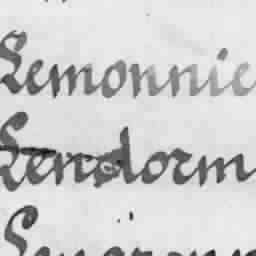 Lemonnie
Lendorm